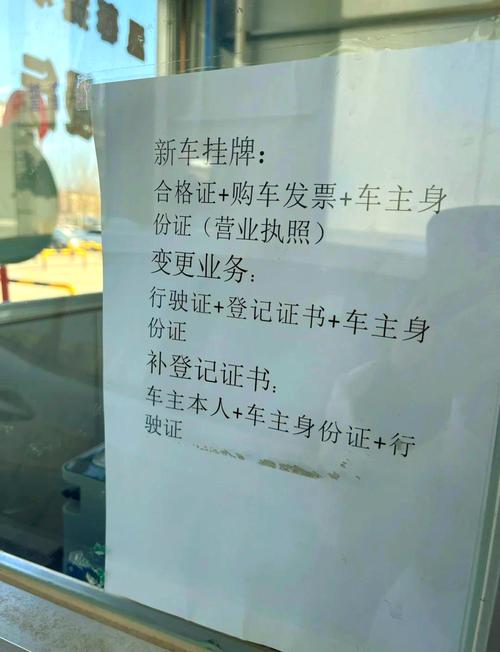 新车挂牌：
合格证+购车发票+车主身
份证（营业执照）
变更业务：
行驶证+登记证书+车主身
份证
补登记证书：
车主本人+车主身份证+行
驶证